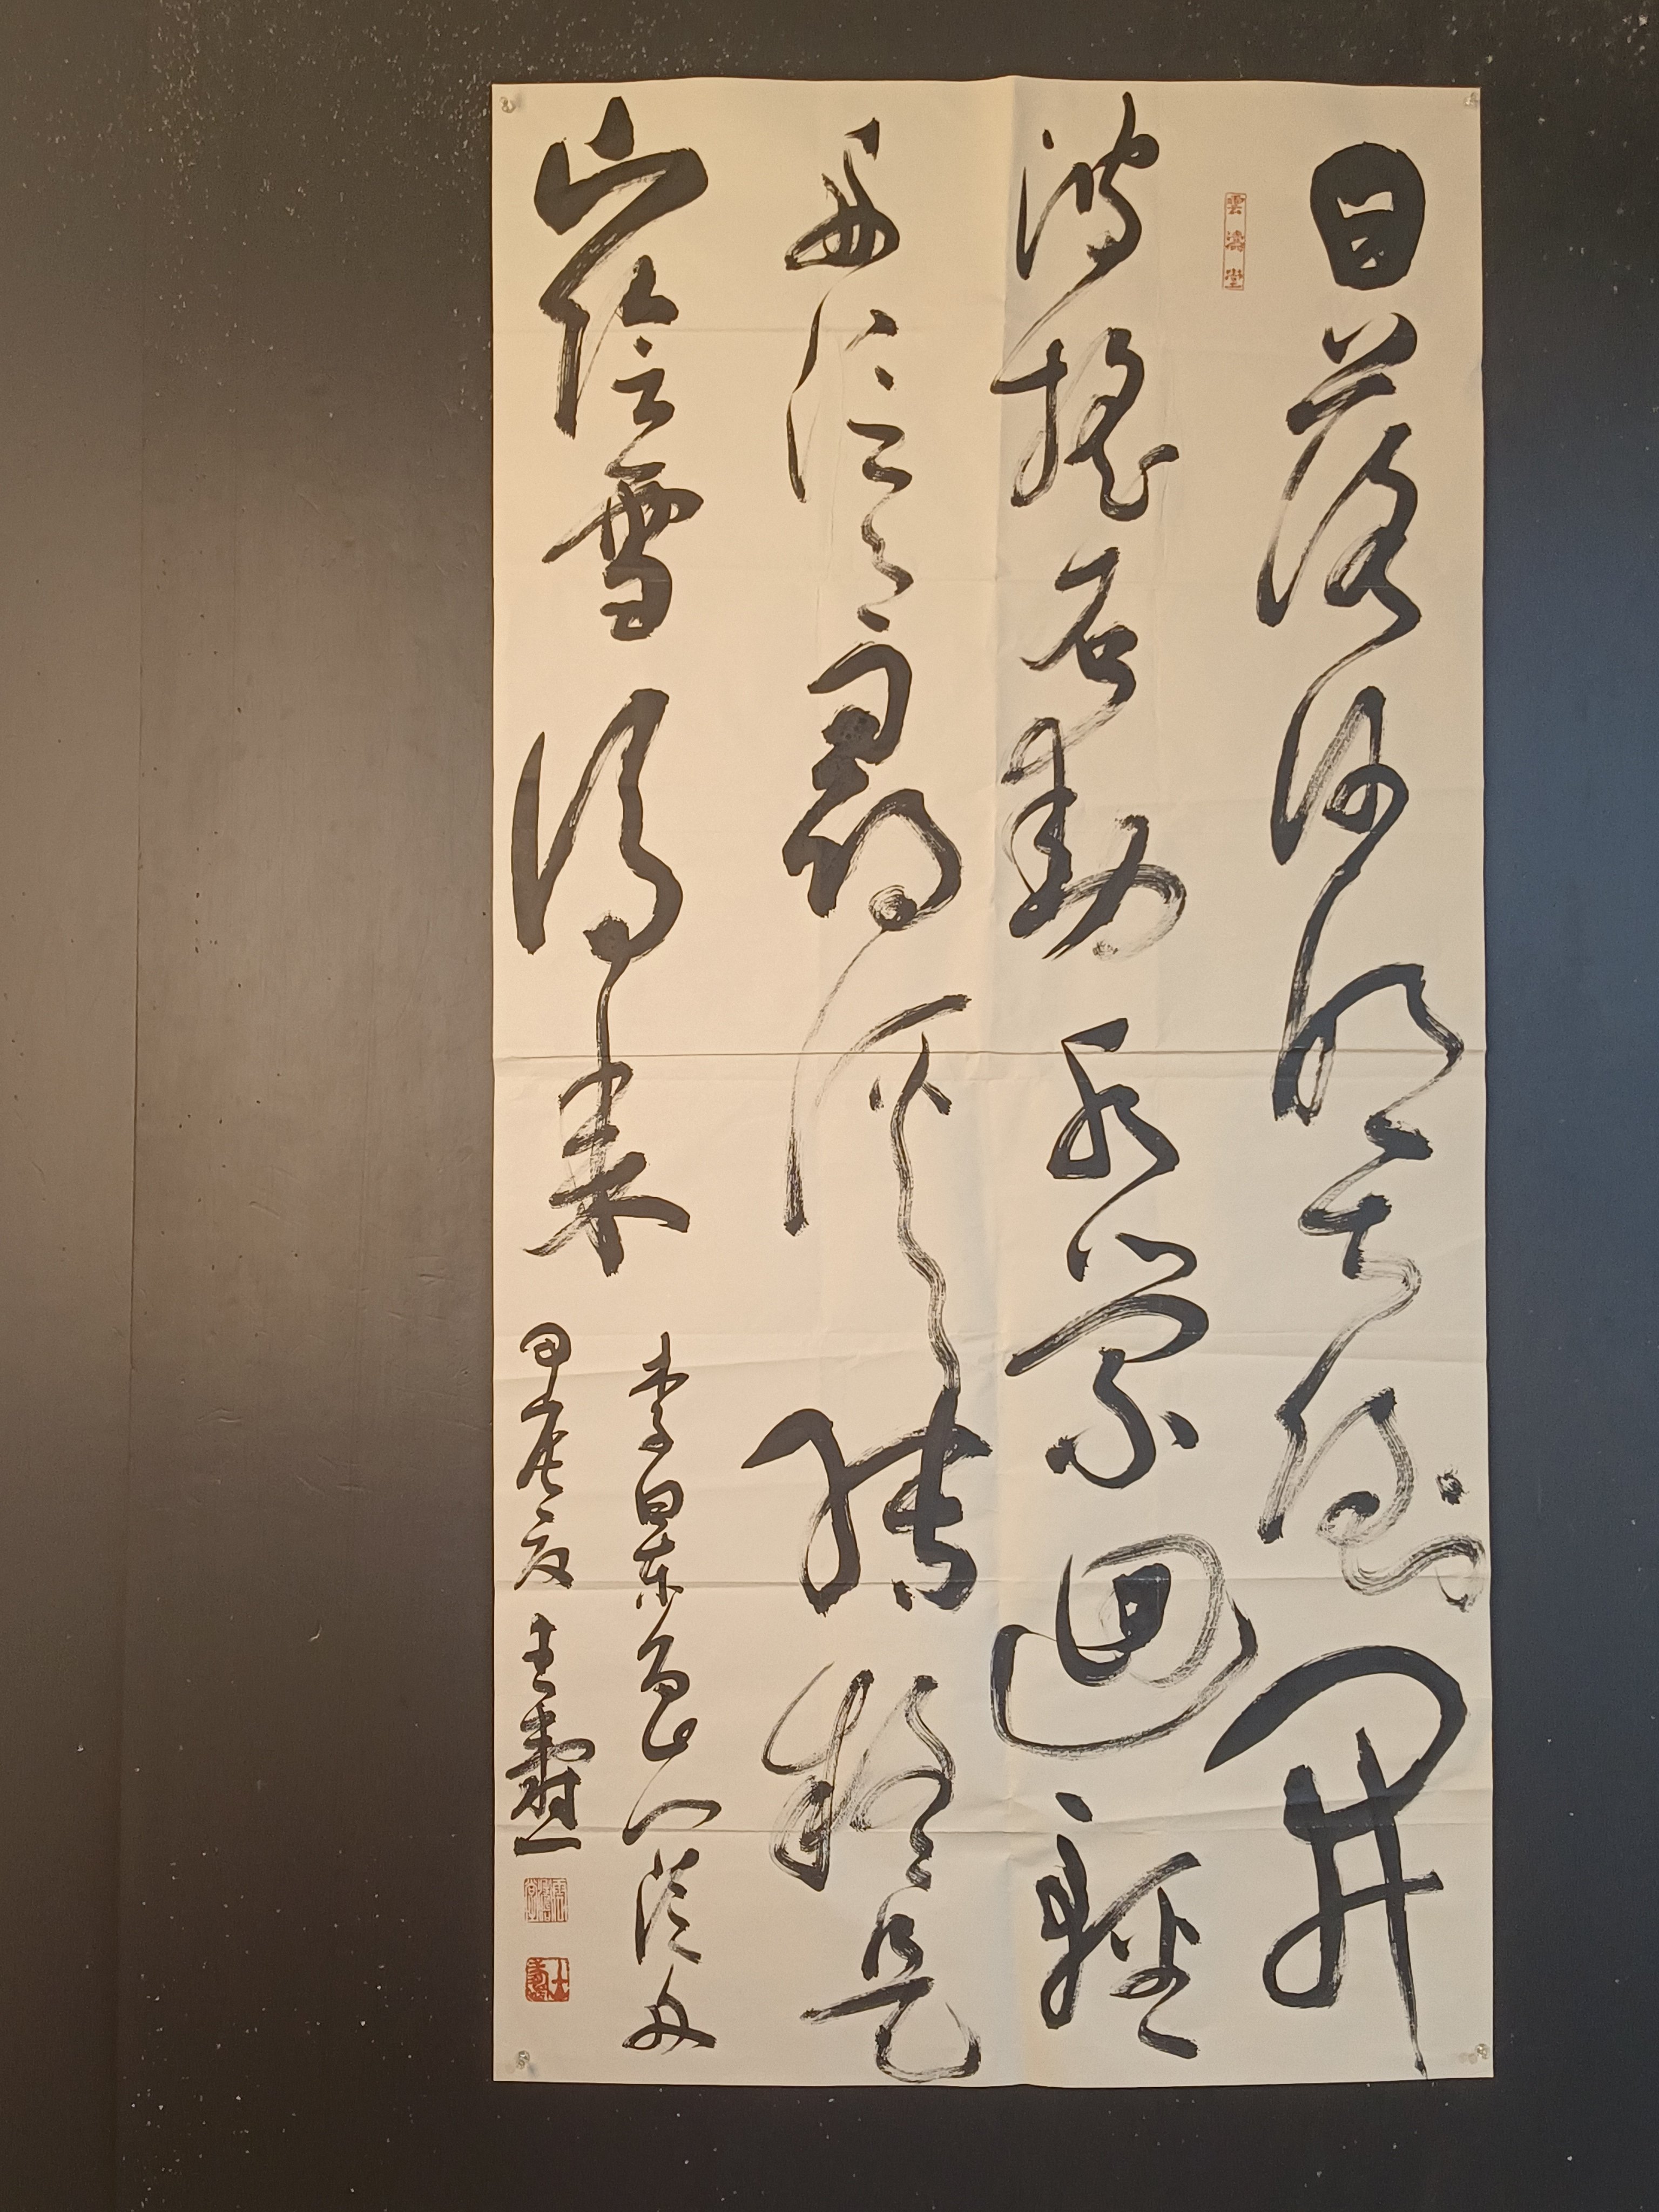 日落沙明天倒開
雲濤堂
波搖石動水縈迴輕
舟泛月尋溪轉疑是
山陰雪後來
李白東魯門泛舟
甲辰夏王燾